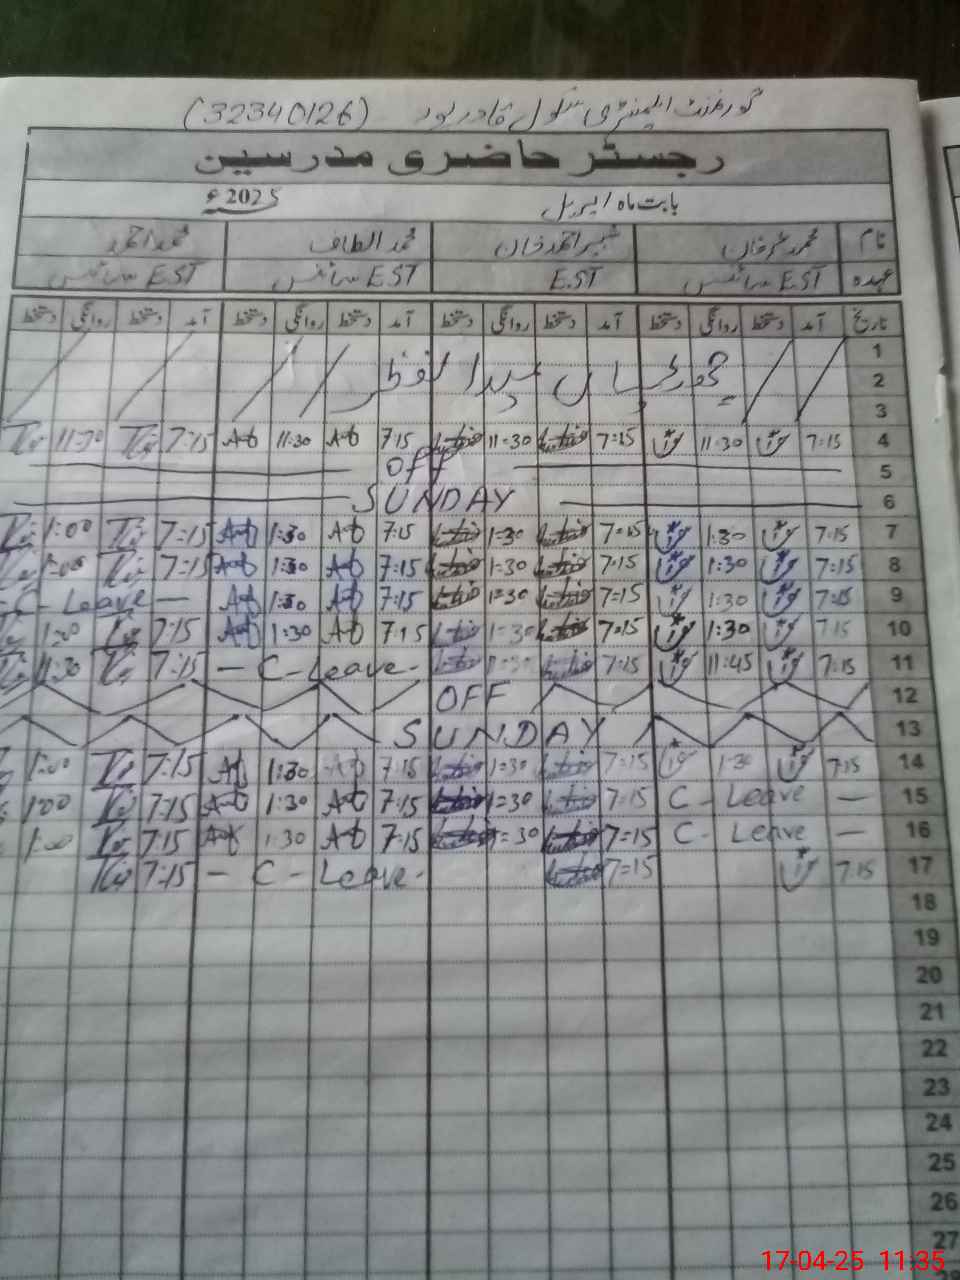 گورنمنٹ ایلیمنٹری سکول قادر پور (32340126)
رجسٹر حاضری مدرسین
بابت ماہ اپریل 2025ء
نام محمد عمر خان شبیر احمد خان محمد الطاف محمد احمد
عہدہ EST سائنس EST EST سائنس EST سائنس
تاریخ آمد دستخط روانگی دستخط آمد دستخط روانگی دستخط آمد دستخط روانگی دستخط آمد دستخط روانگی دستخط
1
2 عید الفطر
3
4 7:15 11:30 7:15 11:30 7:15 11:30 7:15 11:30
5 OFF
6 SUNDAY
7 7:15 1:30 7:15 1:30 7:15 1:30 7:15 1:00
8 7:15 1:30 7:15 1:30 7:15 1:30 7:15 1:00
9 7:15 1:30 7:15 1:30 7:15 1:30 C-Leave —
10 7:15 1:30 7:15 1:30 7:15 1:30 7:15
11 7:15 11:45 7:15 — C-Leave- 7:15 11:30
12 OFF
13 SUNDAY
14 7:15 1:30 7:15 1:30 7:15 1:30 7:15 1:00
15 C-Leave — 7:15 1:30 7:15 1:30 7:15 1:00
16 C-Leave — 7:15 1:30 7:15 1:30 7:15 1:00
17 7:15 7:15 — C-Leave- 7:15
18
19
20
21
22
23
24
25
26
27
17-04-25 11:35